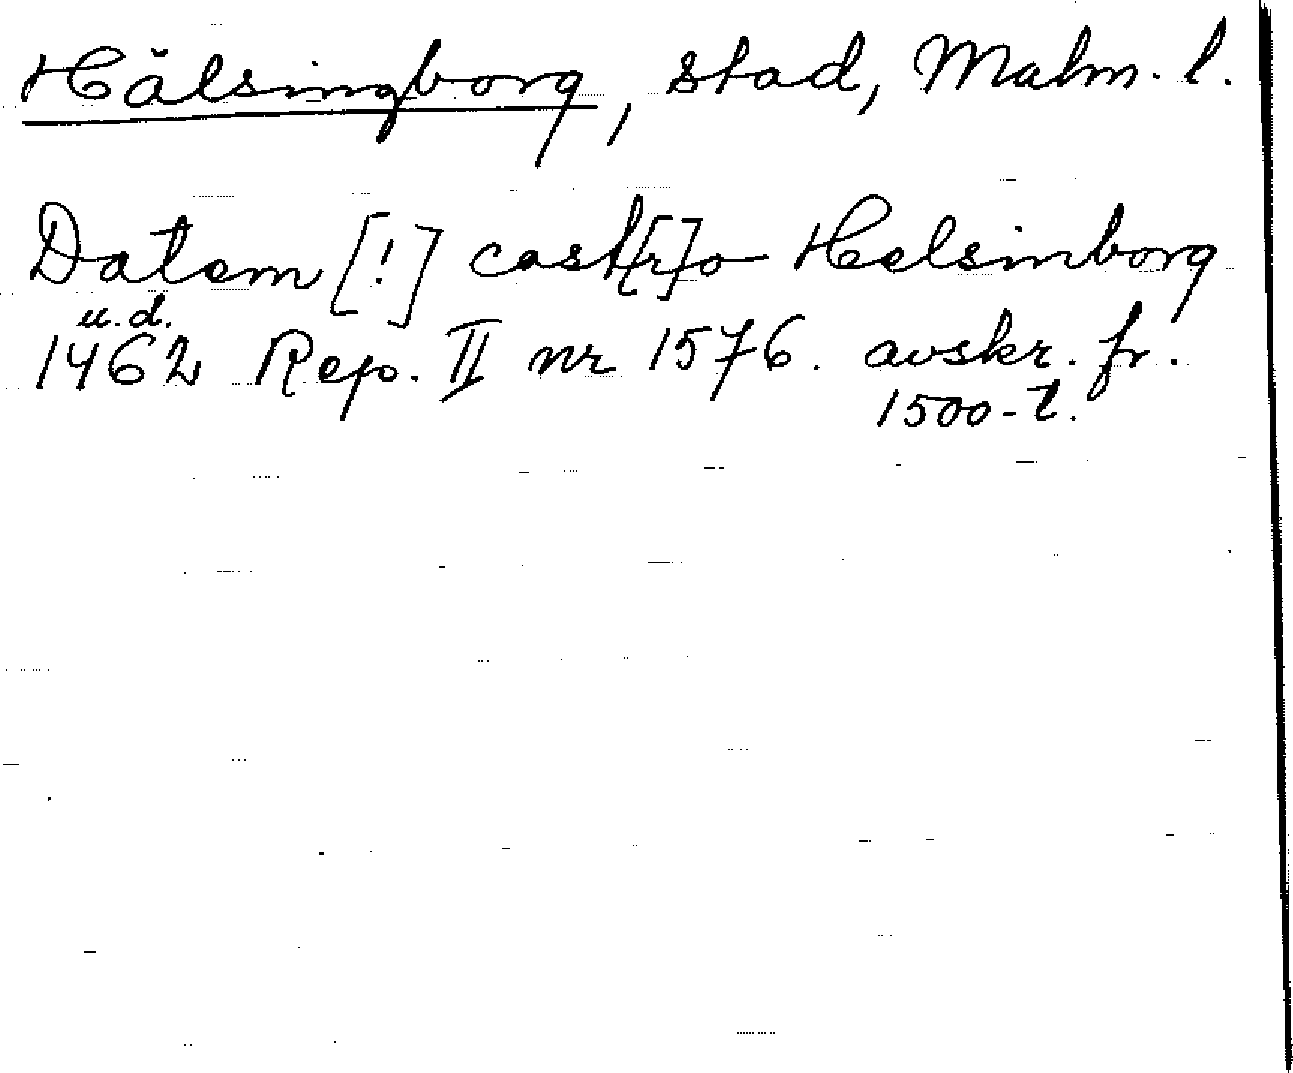 Hälsingborg, stad, Malm. l.
Datem [!] cast[r]o Helsinborg
u.d.
1462 Rep. II nr 1576. avskr. fr.
1500-t.